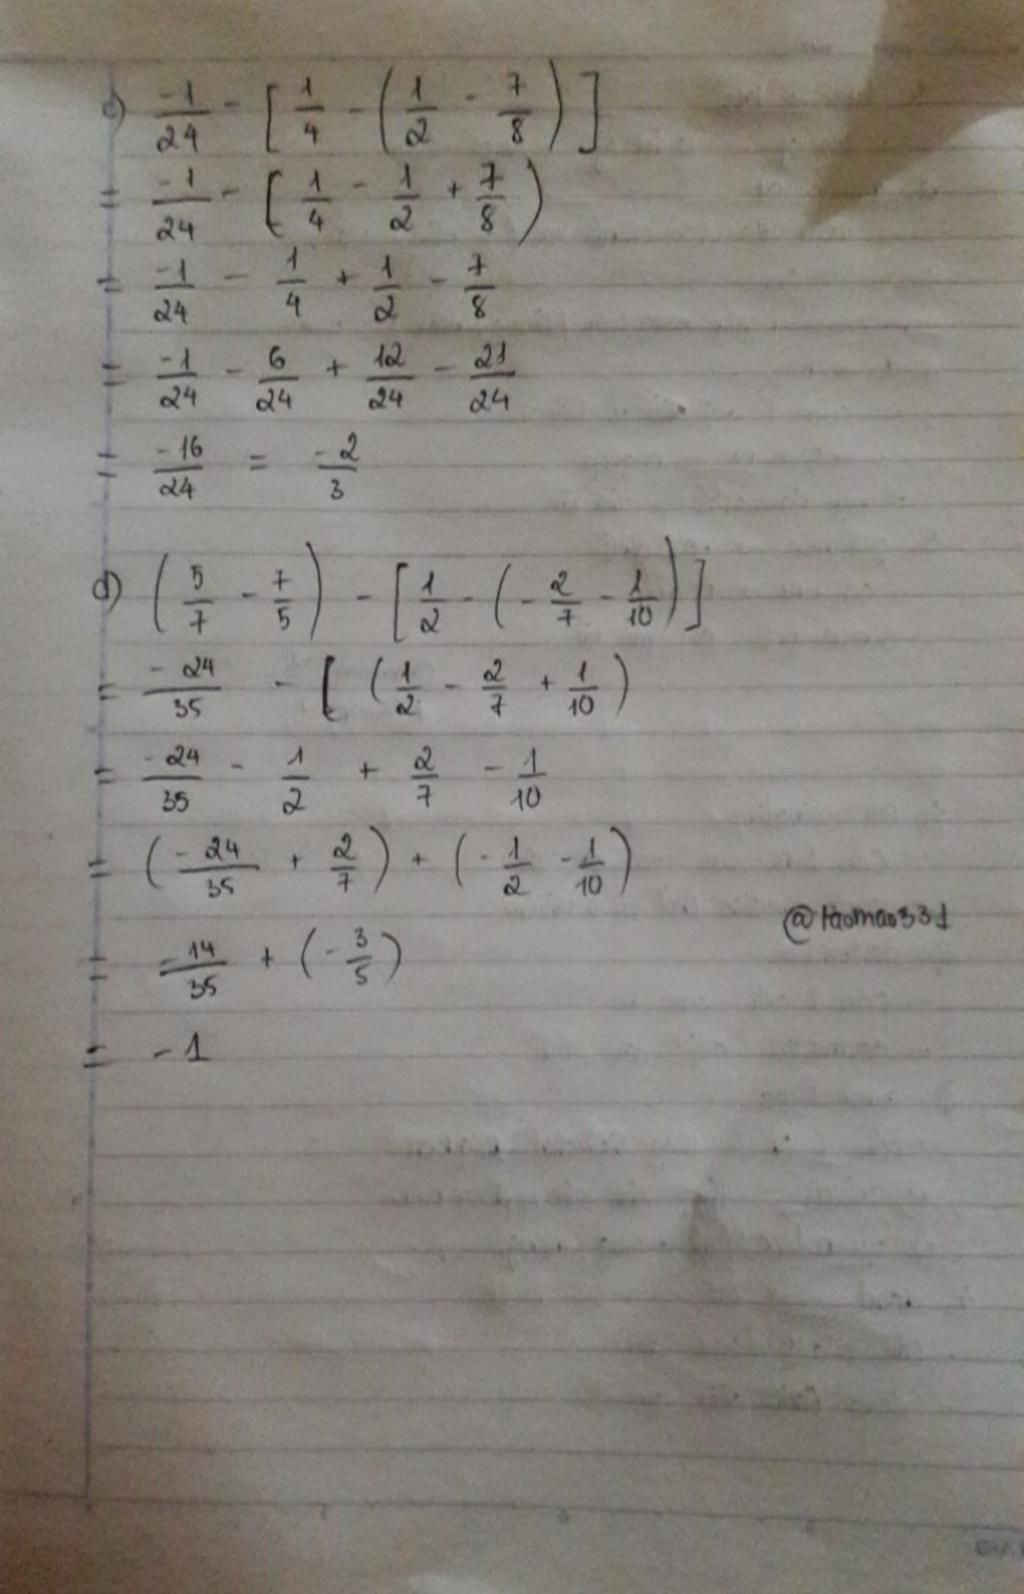 c) -1/24 - [1/4 - (1/2 - 7/8)]
= -1/24 - [1/4 - 1/2 + 7/8)
= -1/24 - 1/4 + 1/2 - 7/8
= -1/24 - 6/24 + 12/24 - 21/24
= -16/24 = -2/3
d) (5/7 - 7/5) - [1/2 - (-2/7 - 1/10)]
= -24/35 - [(1/2 - 2/7 + 1/10)
= -24/35 - 1/2 + 2/7 - 1/10
= (-24/35 + 2/7) + (-1/2 - 1/10)
= -14/35 + (-3/5)
= -1